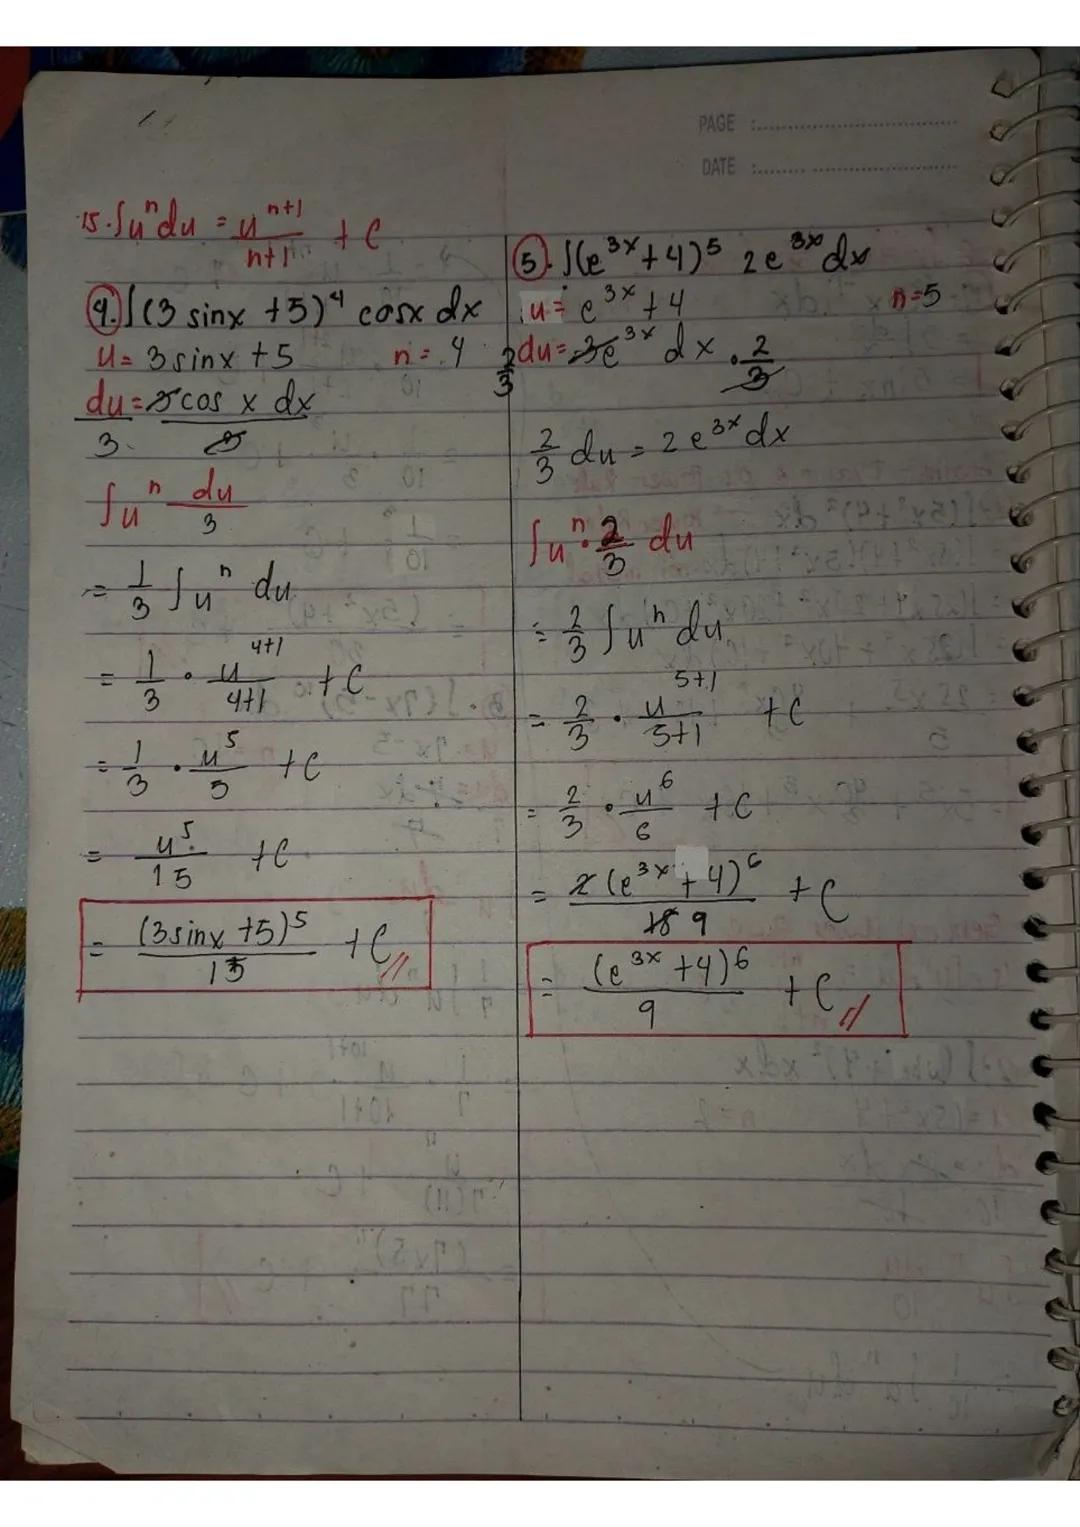 PAGE :
DATE :
15. ∫u^n du = u^(n+1)/(n+1) + C
4. ∫(3 sinx +5)^4 cosx dx
u = 3 sinx + 5    n = 4
du/3 = 3cos x dx/3
∫u^n du/3
= 1/3 ∫u^n du
= 1/3 · u^(4+1)/(4+1) + C
= 1/3 · u^5/5 + C
= u^5/15 + C
= (3sinx +5)^5/15 + C //
5. ∫(e^3x + 4)^5 2e^3x dx
u = e^3x + 4    n = 5
2/3 du = 3e^3x dx · 2/3
2/3 du = 2e^3x dx
∫u^n · 2/3 du
= 2/3 ∫u^n du
= 2/3 · u^(5+1)/(5+1) + C
= 2/3 · u^6/6 + C
= 2(e^3x + 4)^6/18 9 + C
= (e^3x + 4)^6/9 + C //